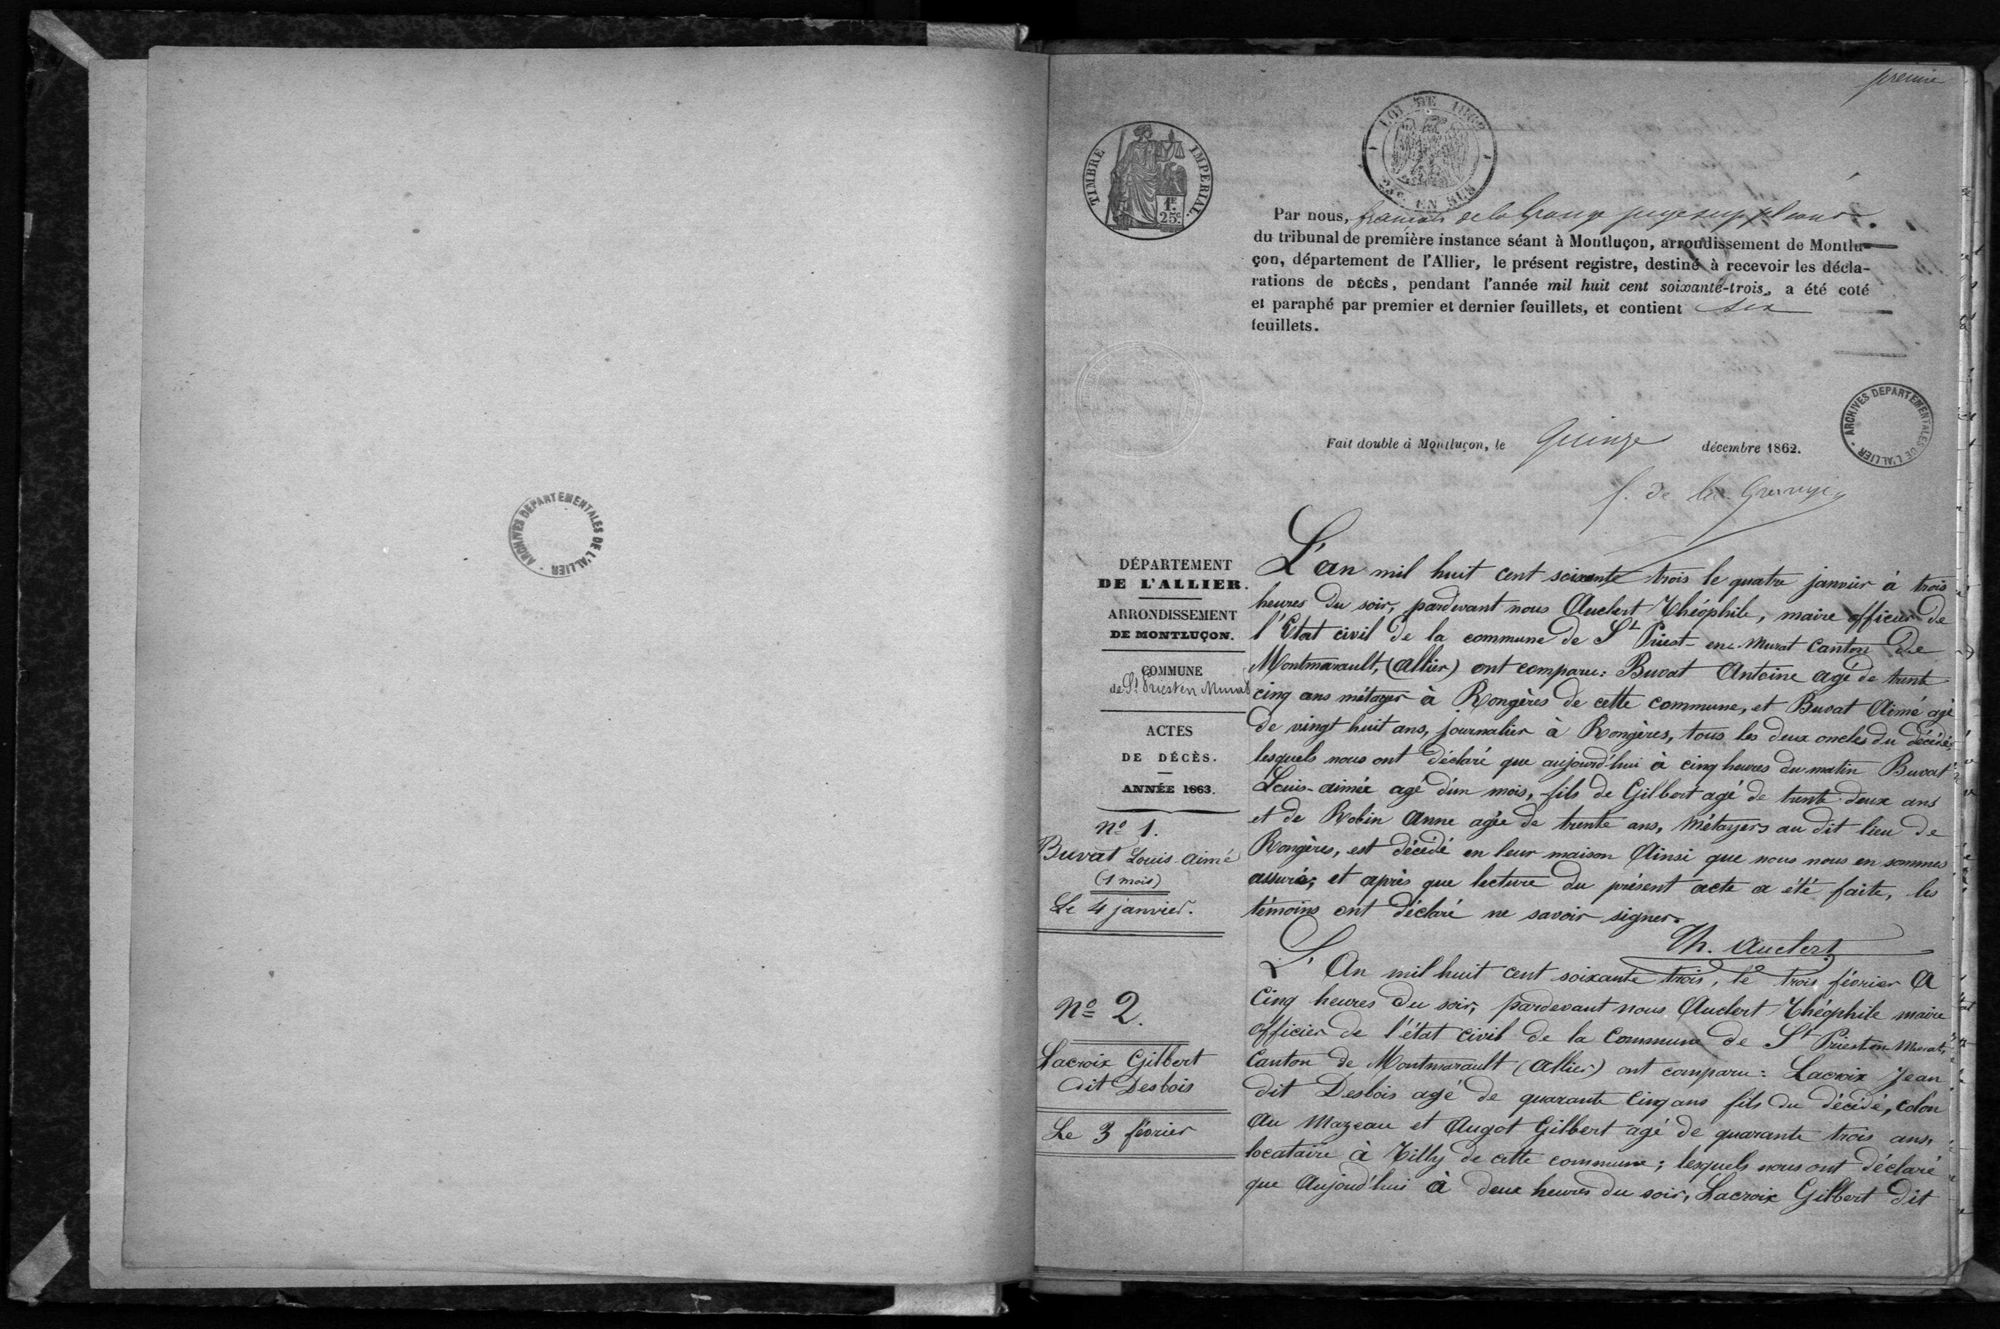 ARCHIVES DEPARTEMENTALES DE L'ALLIER
premier
LOI DE 1862
25c. EN SUS
TIMBRE IMPÉRIAL.
1F.
25c.
Par nous, françois de la Grange juge suppléant
du tribunal de première instance séant à Montluçon, arrondissement de Montlu-
çon, département de l'Allier, le présent registre, destiné à recevoir les décla-
rations de DÉCÈS, pendant l'année mil huit cent soixante-trois, a été coté
et paraphé par premier et dernier feuillets, et contient six
feuillets.
ARCHIVES DEPARTEMENTALES DE L'ALLIER
Fait double à Montluçon, le quinze décembre 1862.
f. de la Grange
DÉPARTEMENT
DE L'ALLIER.
ARRONDISSEMENT
DE MONTLUÇON.
COMMUNE
de St Priest en Murat
ACTES
DE DÉCÈS.
ANNÉE 1863.
No 1.
Buvat Louis-aimé
(1 mois)
Le 4 janvier.
L'an mil huit cent soixante trois le quatre janvier à trois
heures du soir, pardevant nous Auclert Théophile, maire officier de
l'Etat civil de la commune de St Priest-en-Murat Canton de
Montmarault, (Allier) ont comparu: Buvat Antoine agé de trente
cinq ans métayer à Rongères de cette commune, et Buvat Aimé agé
de vingt huit ans, journalier à Rongères, tous les deux oncles du décédé,
lesquels nous ont déclaré que aujourd'hui à cinq heures du matin Buvat
Louis-aimée agé d'un mois, fils de Gilbert agé de trente deux ans
et de Robin Anne agée de trente ans, Métayers au dit lieu de
Rongères, est décédé en leur maison Ainsi que nous nous en sommes
assuré; et après que lecture du présent acte a été faite, les
témoins ont déclaré ne savoir signer.
Th. Auclert
No 2.
Lacroix Gilbert
dit Desbois
Le 3 février
L'An mil huit cent soixante trois, le trois février A
Cinq heures du soir, pardevant nous Auclert Théophile maire
officier de l'état civil de la Commune de St Priest en Murat,
Canton de Montmarault (Allier) ont comparu: Lacroix Jean
dit Desbois agé de quarante cinq ans fils du décédé, colon
au Mazeau et Augot Gilbert agé de quarante trois ans,
locataire à Tilly de cette commune; lesquels nous ont déclaré
que Aujourd'hui à deux heures du soir, Lacroix Gilbert dit